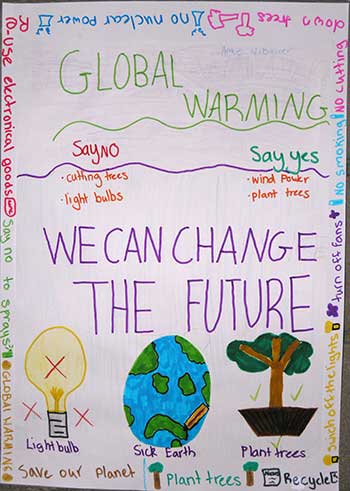 GLOBAL
WARMING
Say NO
Say yes
• cutting trees
• light bulbs
• wind Power
• plant trees
WE CAN CHANGE
THE FUTURE
Light bulb
Sick Earth
Plant trees
Save our planet
Plant trees
Recycle
no nuclear power
down trees
NO cutting
NO smoking
turn off fans
off the lights
Re-use electronical goods
Say no to sprays!
GLOBAL WARMING